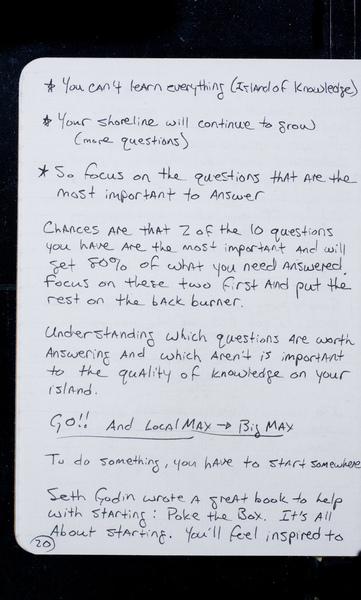 * You can't learn everything (Island of Knowledge)
* Your shoreline will continue to grow
(more questions)
* So focus on the questions that are the
most important to answer
Chances are that 2 of the 10 questions
you have are the most important and will
get 80% of what you need answered.
Focus on these two first and put the
rest on the back burner.
Understanding which questions are worth
answering and which aren't is important
to the quality of knowledge on your
island.
GO!! And Local Max → Big Max
To do something, you have to start somewhere
Seth Godin wrote a great book to help
with starting: Poke the Box. It's all
about starting. You'll feel inspired to
20